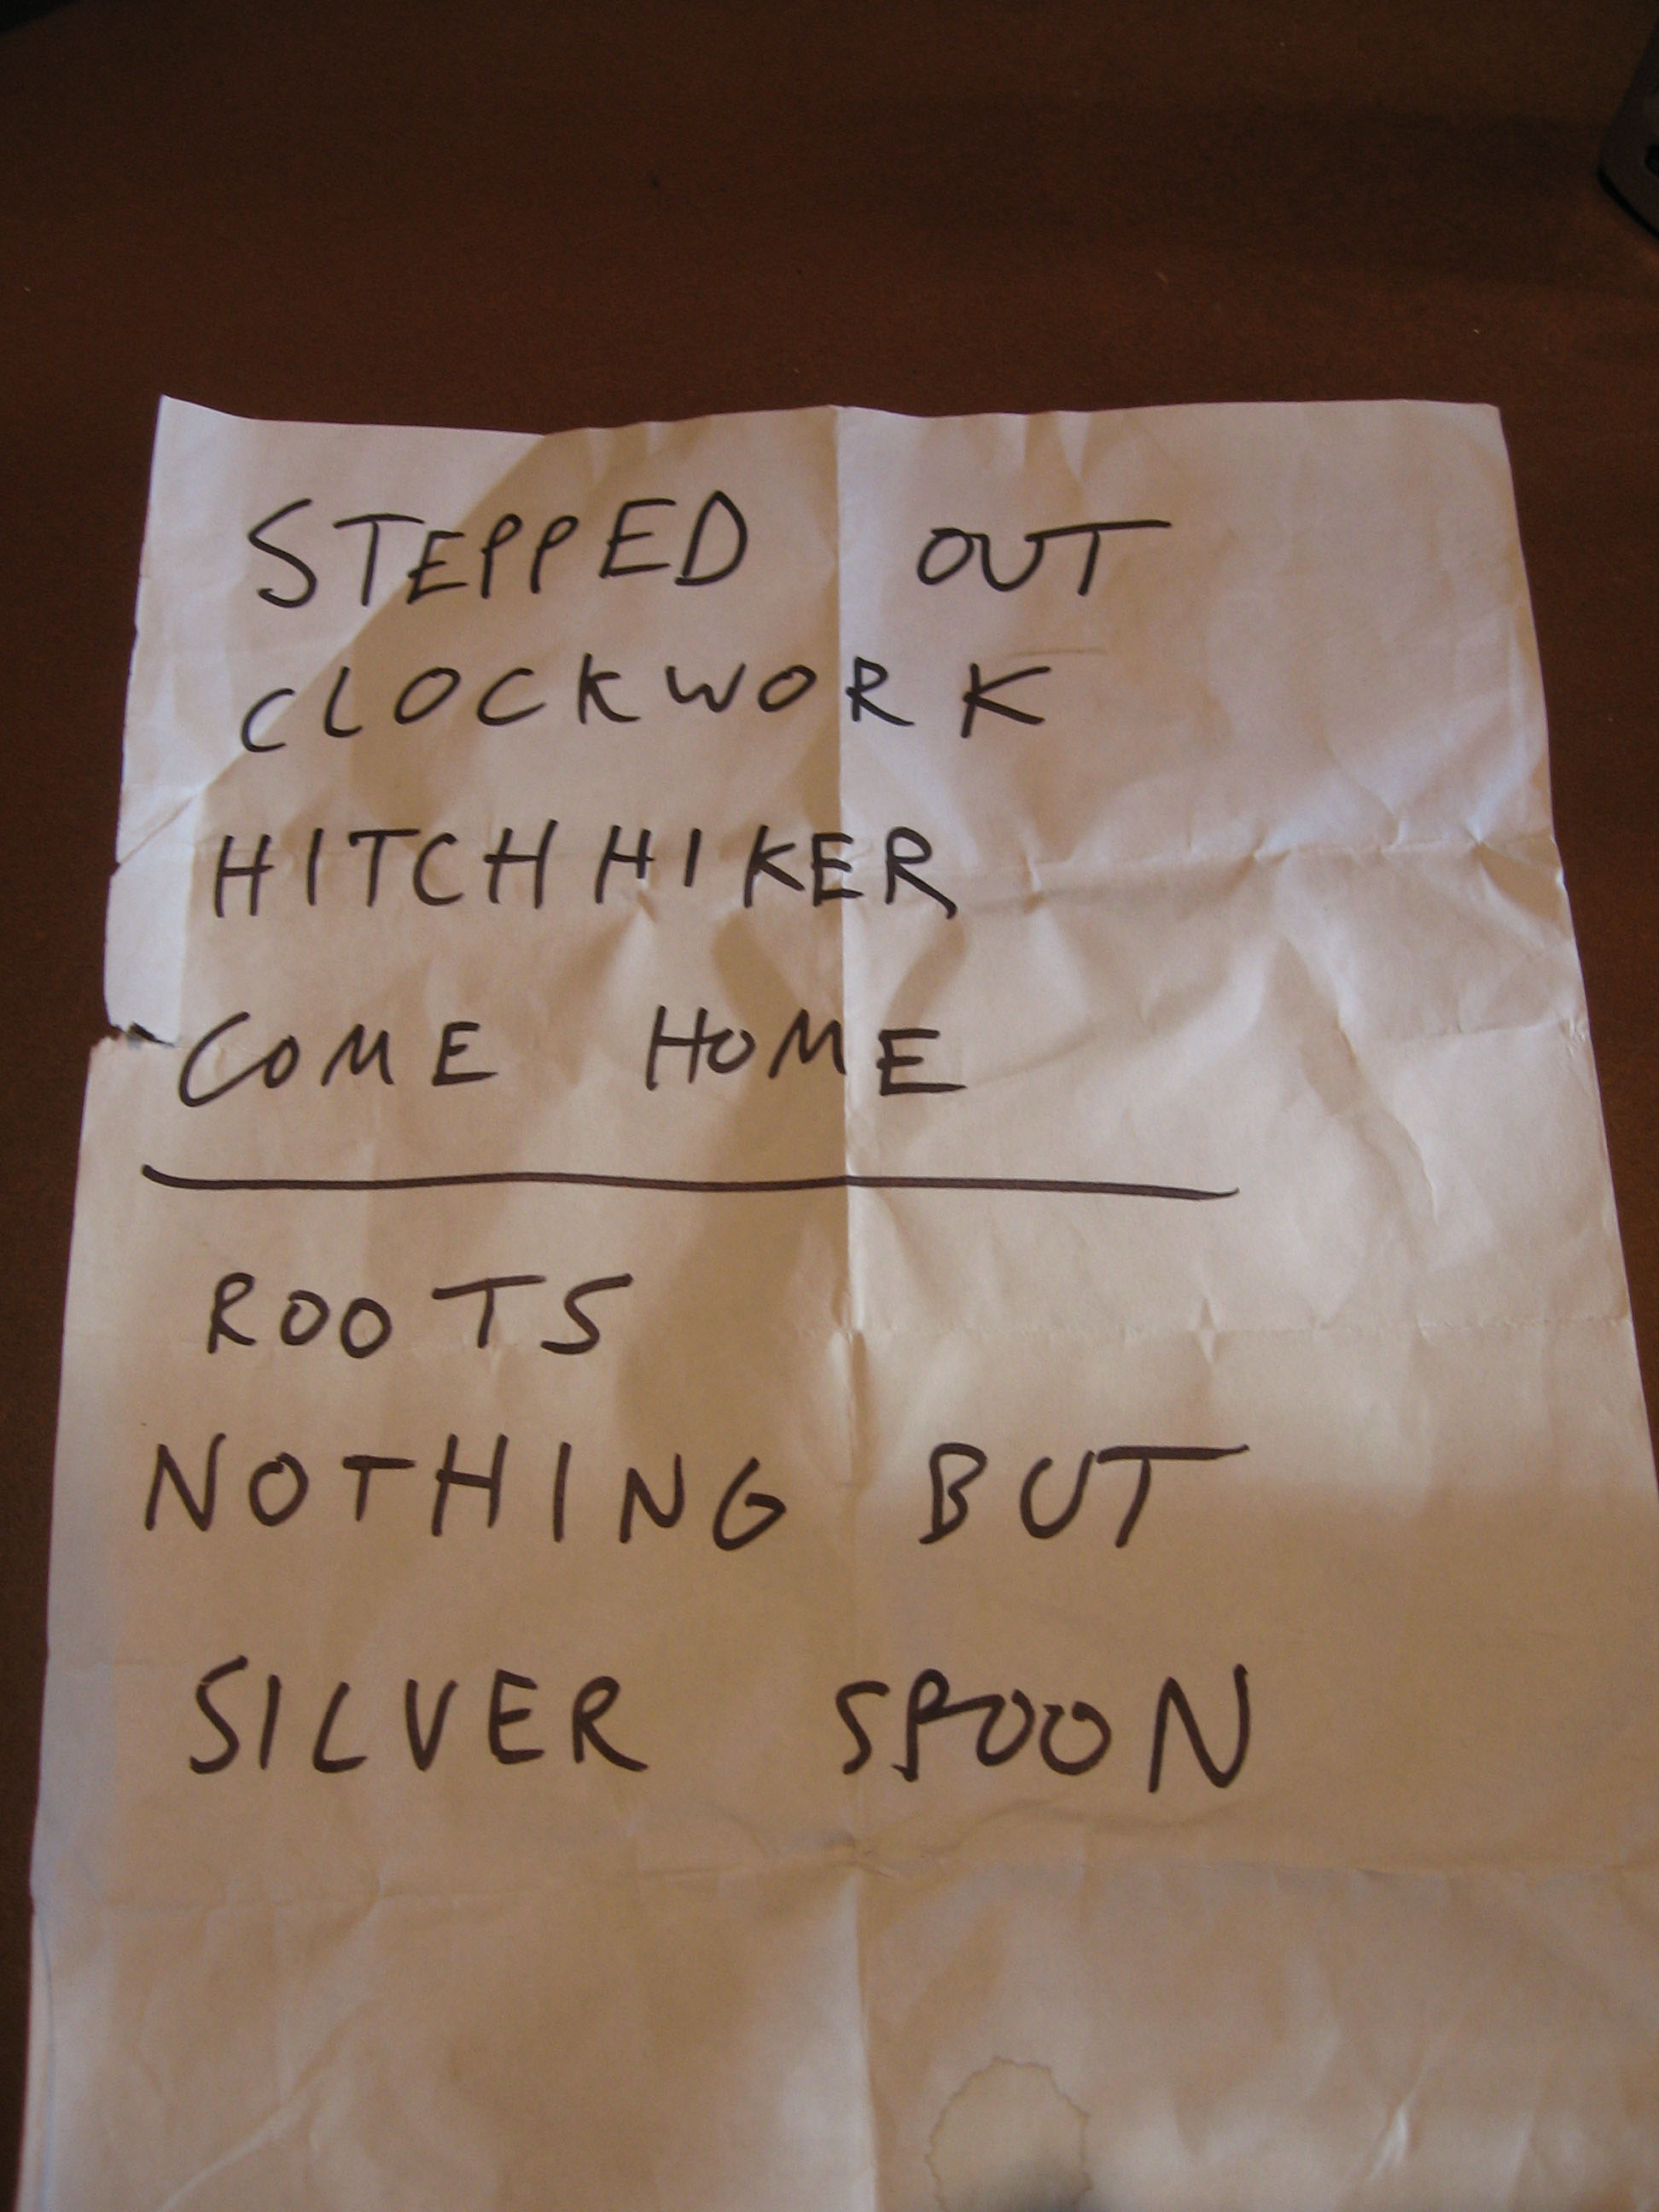 STEPPED OUT
CLOCKWORK
HITCHHIKER
COME HOME
ROOTS
NOTHING BUT
SILVER SPOON